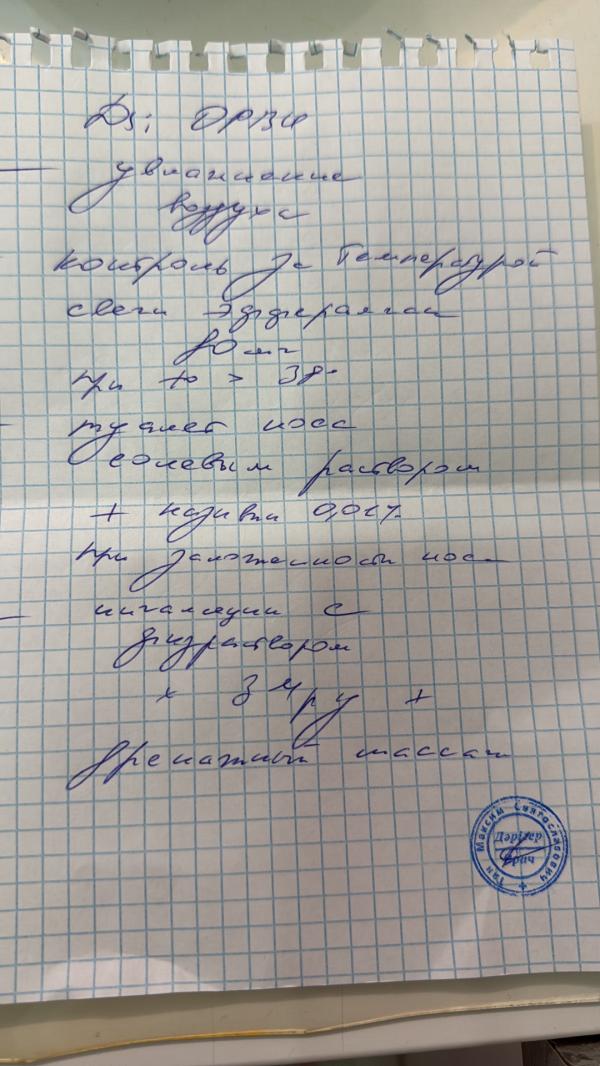 Dз: ОРВИ
увлажнение
воздуха
контроль за температурой
свечи Эффералган
80 мг
при t° > 38°
туалет носа
солевым раствором
+ називин 0,01%
при заложенности носа
ингаляции с
физраствором
х 3 р/д +
дренажный массаж
Тян Максим Святославович
Дәрігер
Врач